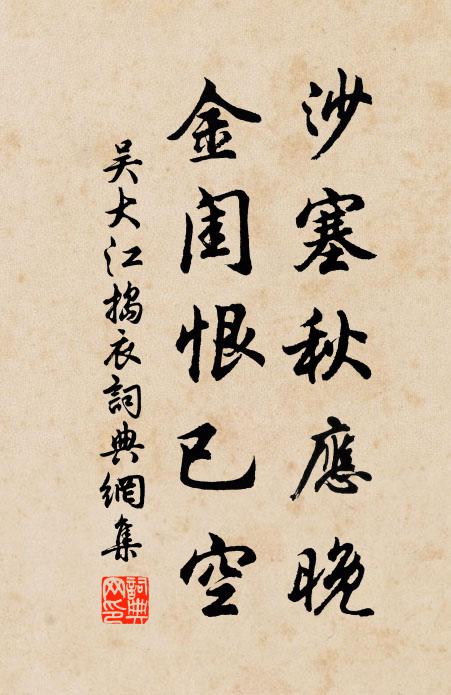 沙塞秋應晚
金閨恨已空
吴大江搗衣詞典網集
詞典網印